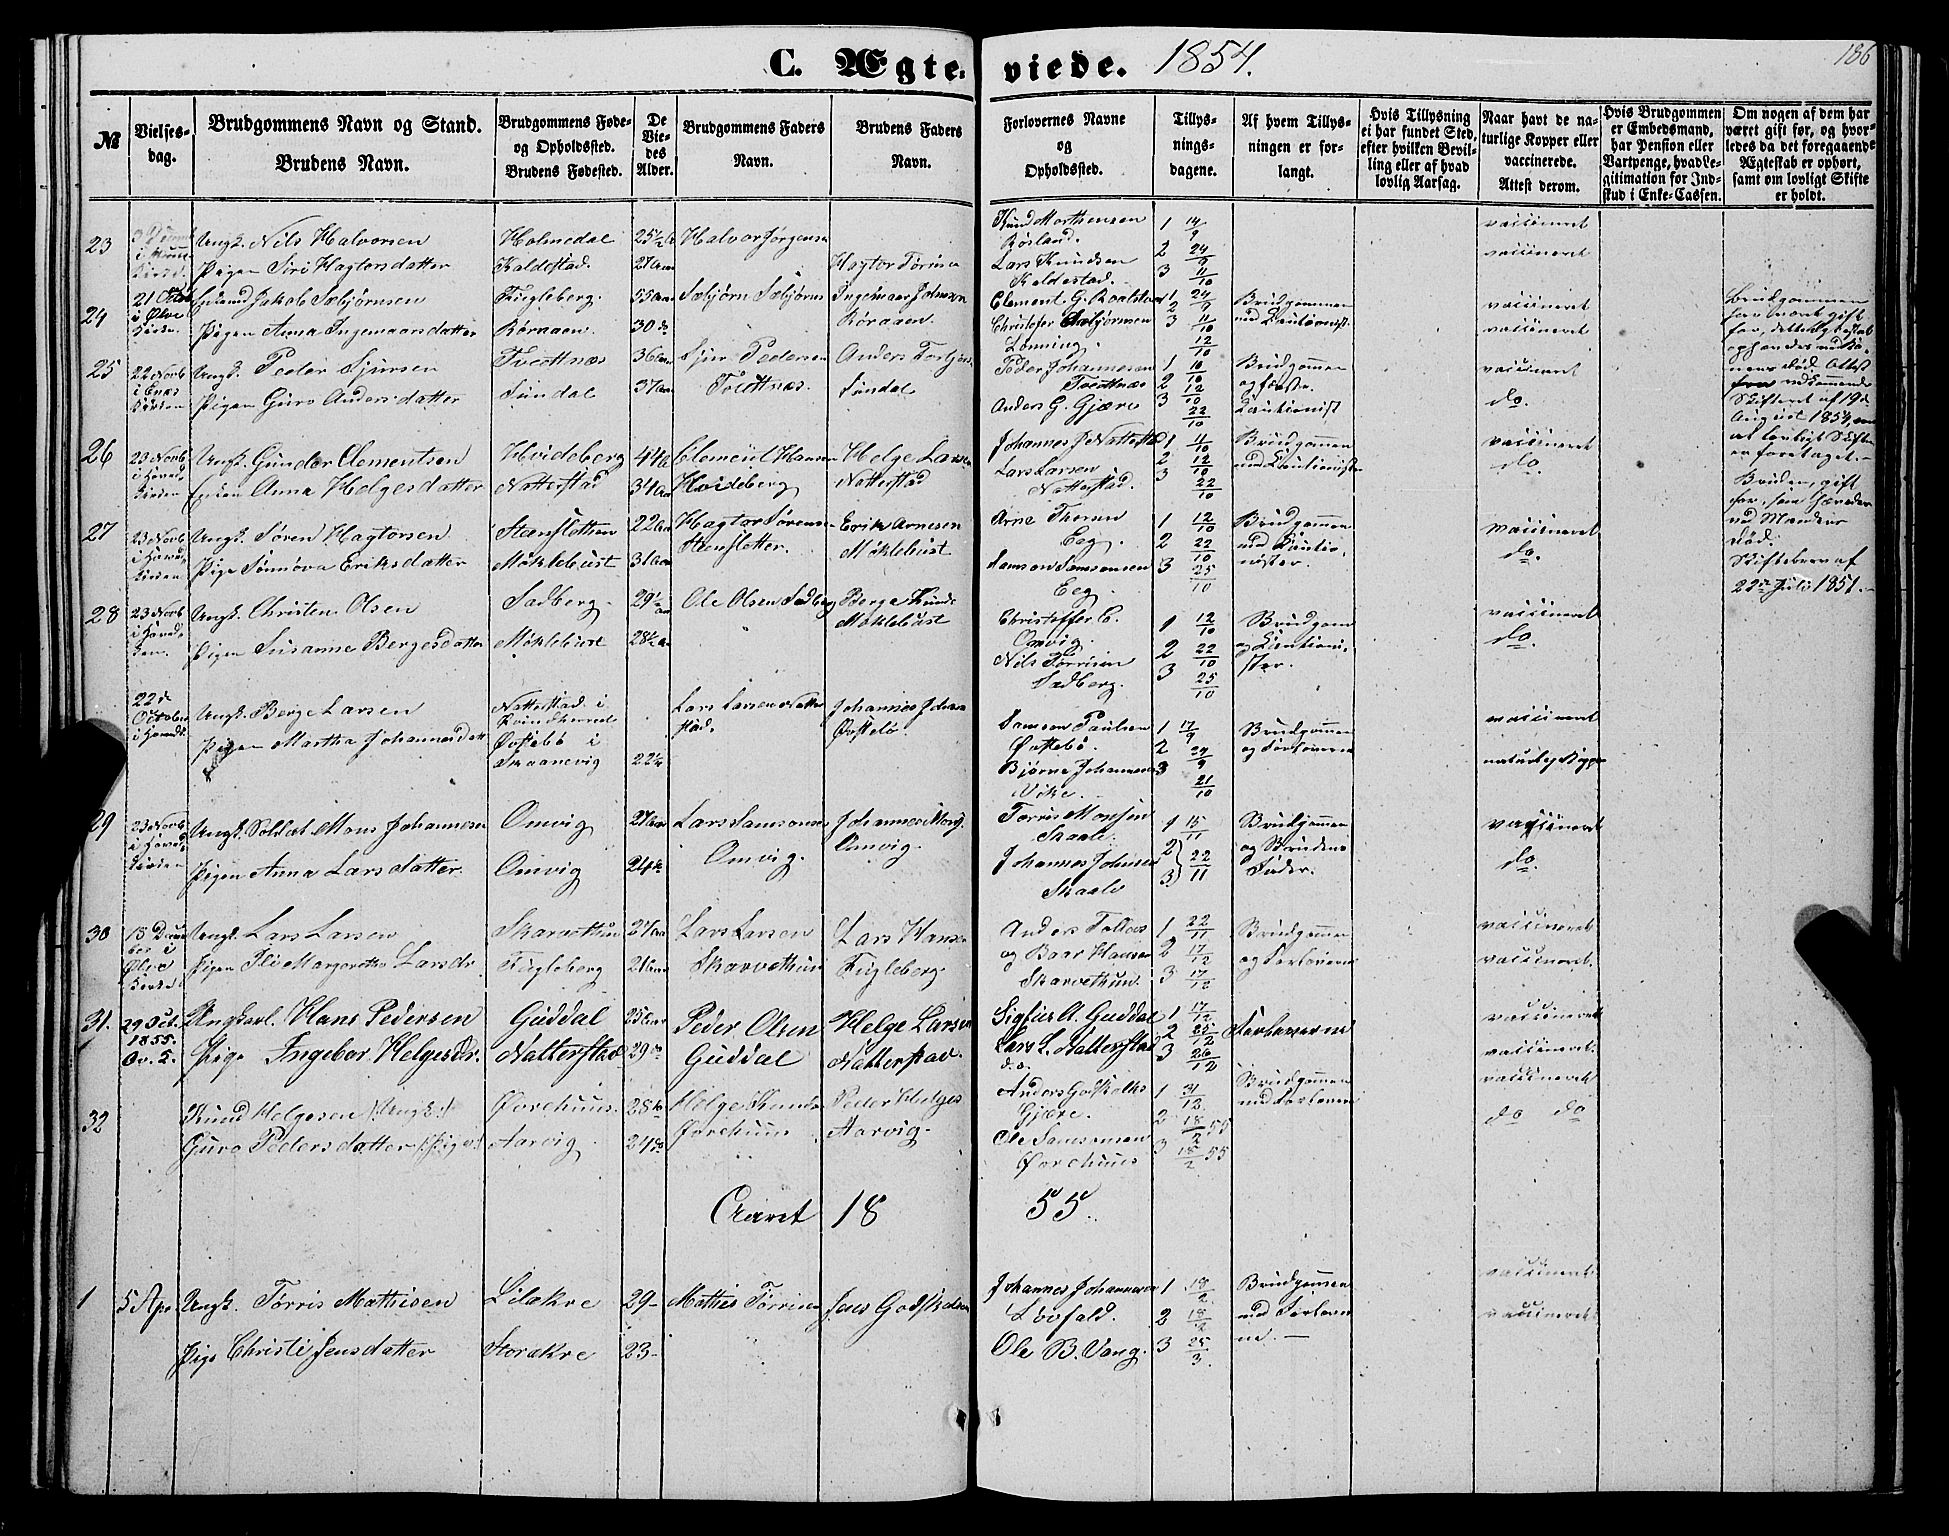 C. Ægte-viede. 1854.
186
№
Vielses-
dag.
Brudgommens Navn og Stand.
Brudens Navn.
Brudgommens Føde-
og Opholdssted.
Brudens Fødested.
De
Vie-
des
Alder.
Brudgommens Faders
Navn.
Brudens Faders
Navn.
Forlovernes Navne
og
Opholdssted.
Tillys-
nings-
dagene.
Af hvem Tillys-
ningen er for-
langt.
Hvis Tillysning
ei har fundet Sted,
efter hvilken Bevil-
ling eller af hvad
lovlig Aarsag.
Naar havt de na-
turlige Kopper eller
vaccinerede.
Attest derom.
Hvis Brudgommen
er Embedsmand,
har Pension eller
Vartpenge, hvad Le-
gitimation for Ind-
skud i Enke-Cassen.
Om nogen af dem har
været gift før, og hvor-
ledes da det foregaaende
Ægteskab er ophørt,
samt om lovligt Skifte
er holdt.
23
Ungk. Nils Halvorsen
Pigen Siri Hagtorsdatter
Holmedal
Kaldestad.
25½
27 Aar
Halvor Jørgensen
Hagtor Tørrisen
Knud Morthensen
Røsland.
Lars Knudsen
Kaldestad.
1 14/9
2 24/9
3 11/10
vaccineret
vaccineret
24
21 Octb
i Ølve
Kirken.
Enkemd Jakob Sæbjørnsen
Pigen Anna Ingemaarsdatter
Fugleberg.
Røraaen
55 Aar
30 do
Sæbjørn Sæbjørns
Ingemaar Johnsen
Røraaen.
Clement G. Koalsten
Christofer Asbjørnsen
Lønning.
1 24/9
2 11/10
3 12/10
Brudgommen
med Cautionist.
vaccineret
vaccineret
Brudgommen
har været gift
før, dette Ægteskab
ophævedes ved Ko-
nens Død. Attest
fra vedkommende
Skifteret af 19de
August 1854, om
at lovligt Skifte
er foretaget.-
25
22 Novb
i Enæs
Kirken
Ungk. Peder Sjursen
Pigen Guro Andersdatter
Tveitnæs
Sundal
36 Aar
37 Aar
Sjur Pedersen
Tveitnæs.
Anders Torbjørs.
Sundal
Peder Johannesen
Tveitnæs
Anders G. Gjære
1 10/10
2 12/10
3 22/10
Brudgommen
og første
Cautionist
vaccineret
do.
26
23 Novb
i Høved-
Kirken
Ungk. Gunder Clementsen
Enken Anna Helgesdatter
Hvideberg
Natterstad
44
34 Aar
Clement Hansen
Hvideberg
Helge Larsen
Natterstad
Johannes J. Natterstad
Lars Larsen
Natterstad.
1 11/10
2 12/10
3 22/10
Brudgommen
med Cautionister
vaccineret
do.
Bruden, gift
før,
ved Mandens
Død.
Skiftebrev af
22de Juli 1851.-
27
23 Novb
i Høved-
Kirken
Ungk. Søren Hagtorsen
Pige Sønnøva Eriksdatter
Steensletten
Møklebust
22 Aar
31 Aar
Hagtor Sørensen
Steensletter.
Erik Arnesen
Møklebust
Arne Thorsen
Eeg.
Samson Samsonsen
Eeg.
1 12/10
2 22/10
3 25/10
Brudgommen
med Cautio-
nister.
vaccineret
do.
28
23 Novb
i Høved-
Kirken.
Ungk. Christen Olsen
Pigen Susanne Bergesdatter
Sadberg.
Møklebust
29½ Aar
28½ Aar
Ole Olsen Sadberg
Berge Knuds
Møklebust
Christoffer C.
Omvig.
Nils Tørrisen
Sadberg.
1 12/10
2 22/10
3 25/10
Brudgom
og Cautioni-
ster.
vaccineret
do.
22de
October
i Høvedk.
Ungk. Berge Larsen
Pigen Martha Johannesdatt
Natterstad i
Qvindherred
Øvstebø i
Skaanevig
22½
Lars Larsen Natter-
stad.
Johannes Johnsen
Øvstebø.
Samson Paulsen
Øvstebø.
Bjørne Johannesen
Vike.
1 17/9
2 24/9
3 21/10
Brudgommen
og Forloverne
vaccineret
naturlig Kopper
29
23 Novb
i Høved-
Kirken
Ungk. Soldat Mons Johannesen
Pigen Anna Larsdatter.
Omvig
Omvig
27 Aar
24
Lars Samsonsen
Omvig.
Johannes Mons.
Omvig.
Tørris Monsen
Skaale.
Johannes Johnsen
Skaale
1 15/11
2) 22/11
3)
Brudgommen
og Brudens
Fader.
vaccineret
do.
30
Ølve
Kirke
Ungk. Lars Larsen
Pigen Pli Margrethe Larsdr.
Skarvethun
Fugleberg
27 Aar
21 Aar
Lars Larsen
Skarvethun
Lars Hansen
Fugleberg.
Anders Tollevs
og Baar Hansen
Skarvethun.
1 22/11
2 17/12
3 17/12
Brudgommen
og Forloverne
vaccineret
vaccineret.
31.
29 Oct.
1855.
Ov. S.
Ungkarl. Hans Pedersen
Pige Ingebor Helgesdr.
Guddal
Natterstad
25 Aar
29 do
Peder Olsen
Guddal
Helge Larsen
Natterstad.
Sigfus A. Guddal
Lars L. Natterstad
do.
1 17/12
2 25/12
3 26/12
Forloverne
vaccineret
vaccineret.
32
Knud Helgesen (:Ungk:)
Guro Pedersdatter (:Pige:)
Ørehuus.
Aarvig
28
24 do
Helge Knuds
Ørehuus
Peder Helges
Aarvig.
Anders Godskalks
Gjære.
Ole Samsonsen
Ørehuus
1 31/12
2 18/2 55
3 18/2 55
Brudgommen
med Forlovere
vaccineret
do do
Aaret 18 55.
1
5 Apr.
Ungk. Tørris Mathisen
Pige Christi Jensdatter
Lilakre
Storakre
29-
23-
Mathis Tørrisen
Jens Godskalksen
Johannes Johannesen
Løvfald.
Ole B. Vang.
1 18/2
2 18/2
3 25/3.
Brudgommen
med Forlover-
ne.-
vaccineret
vaccineret